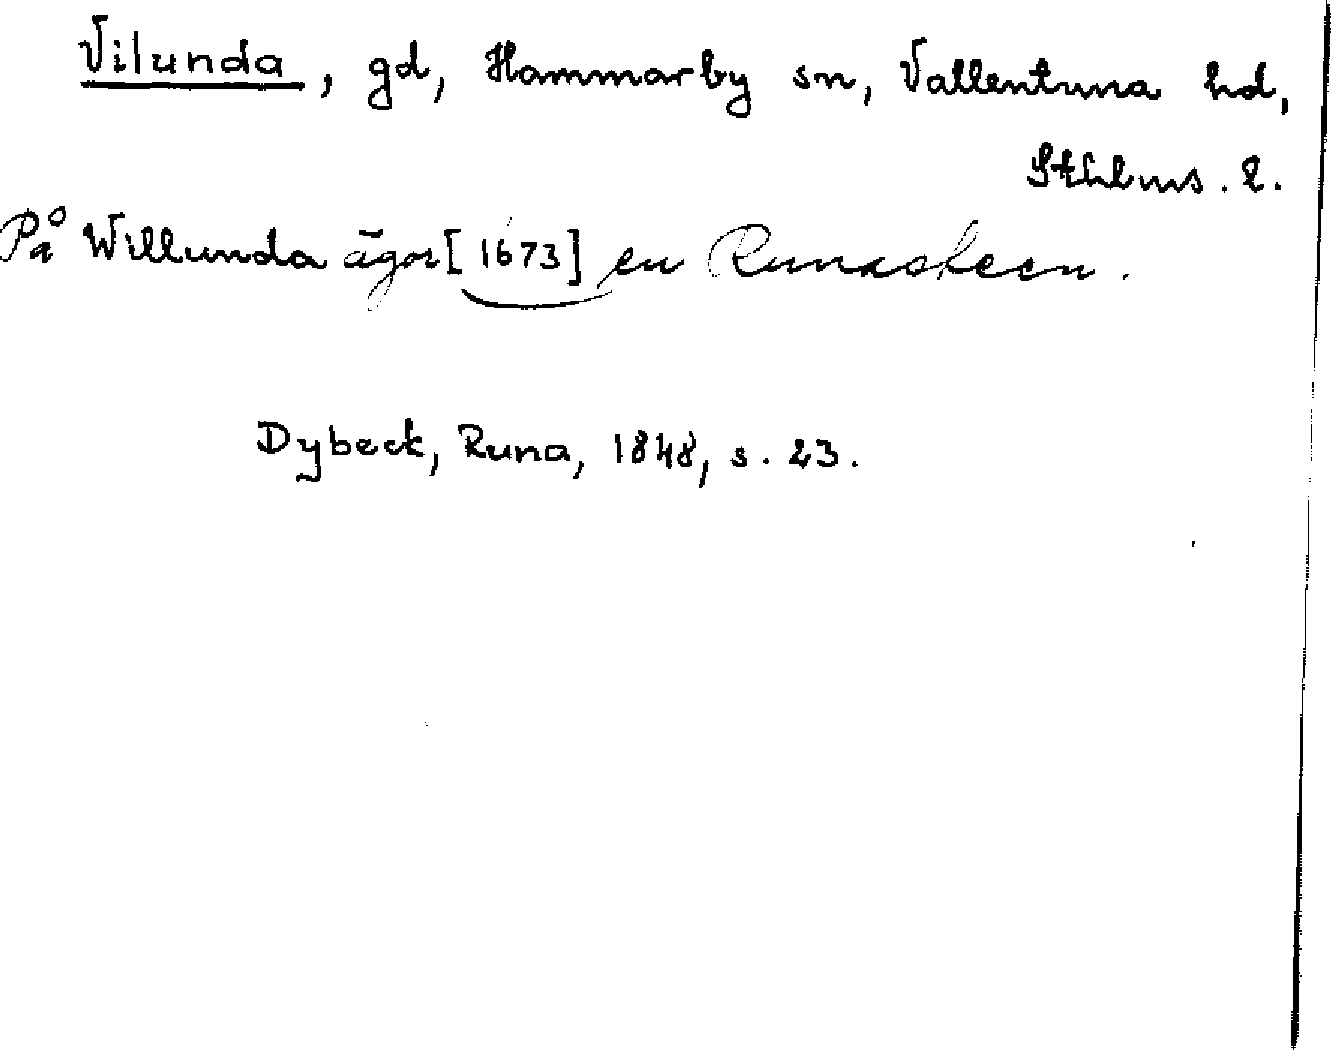 Vilunda, gd, Hammarby sn, Vallentuna hd,
Sthlms. l.
På Willunda ägor [1673] en Runasteen.
Dybeck, Runa, 1848, s. 23.